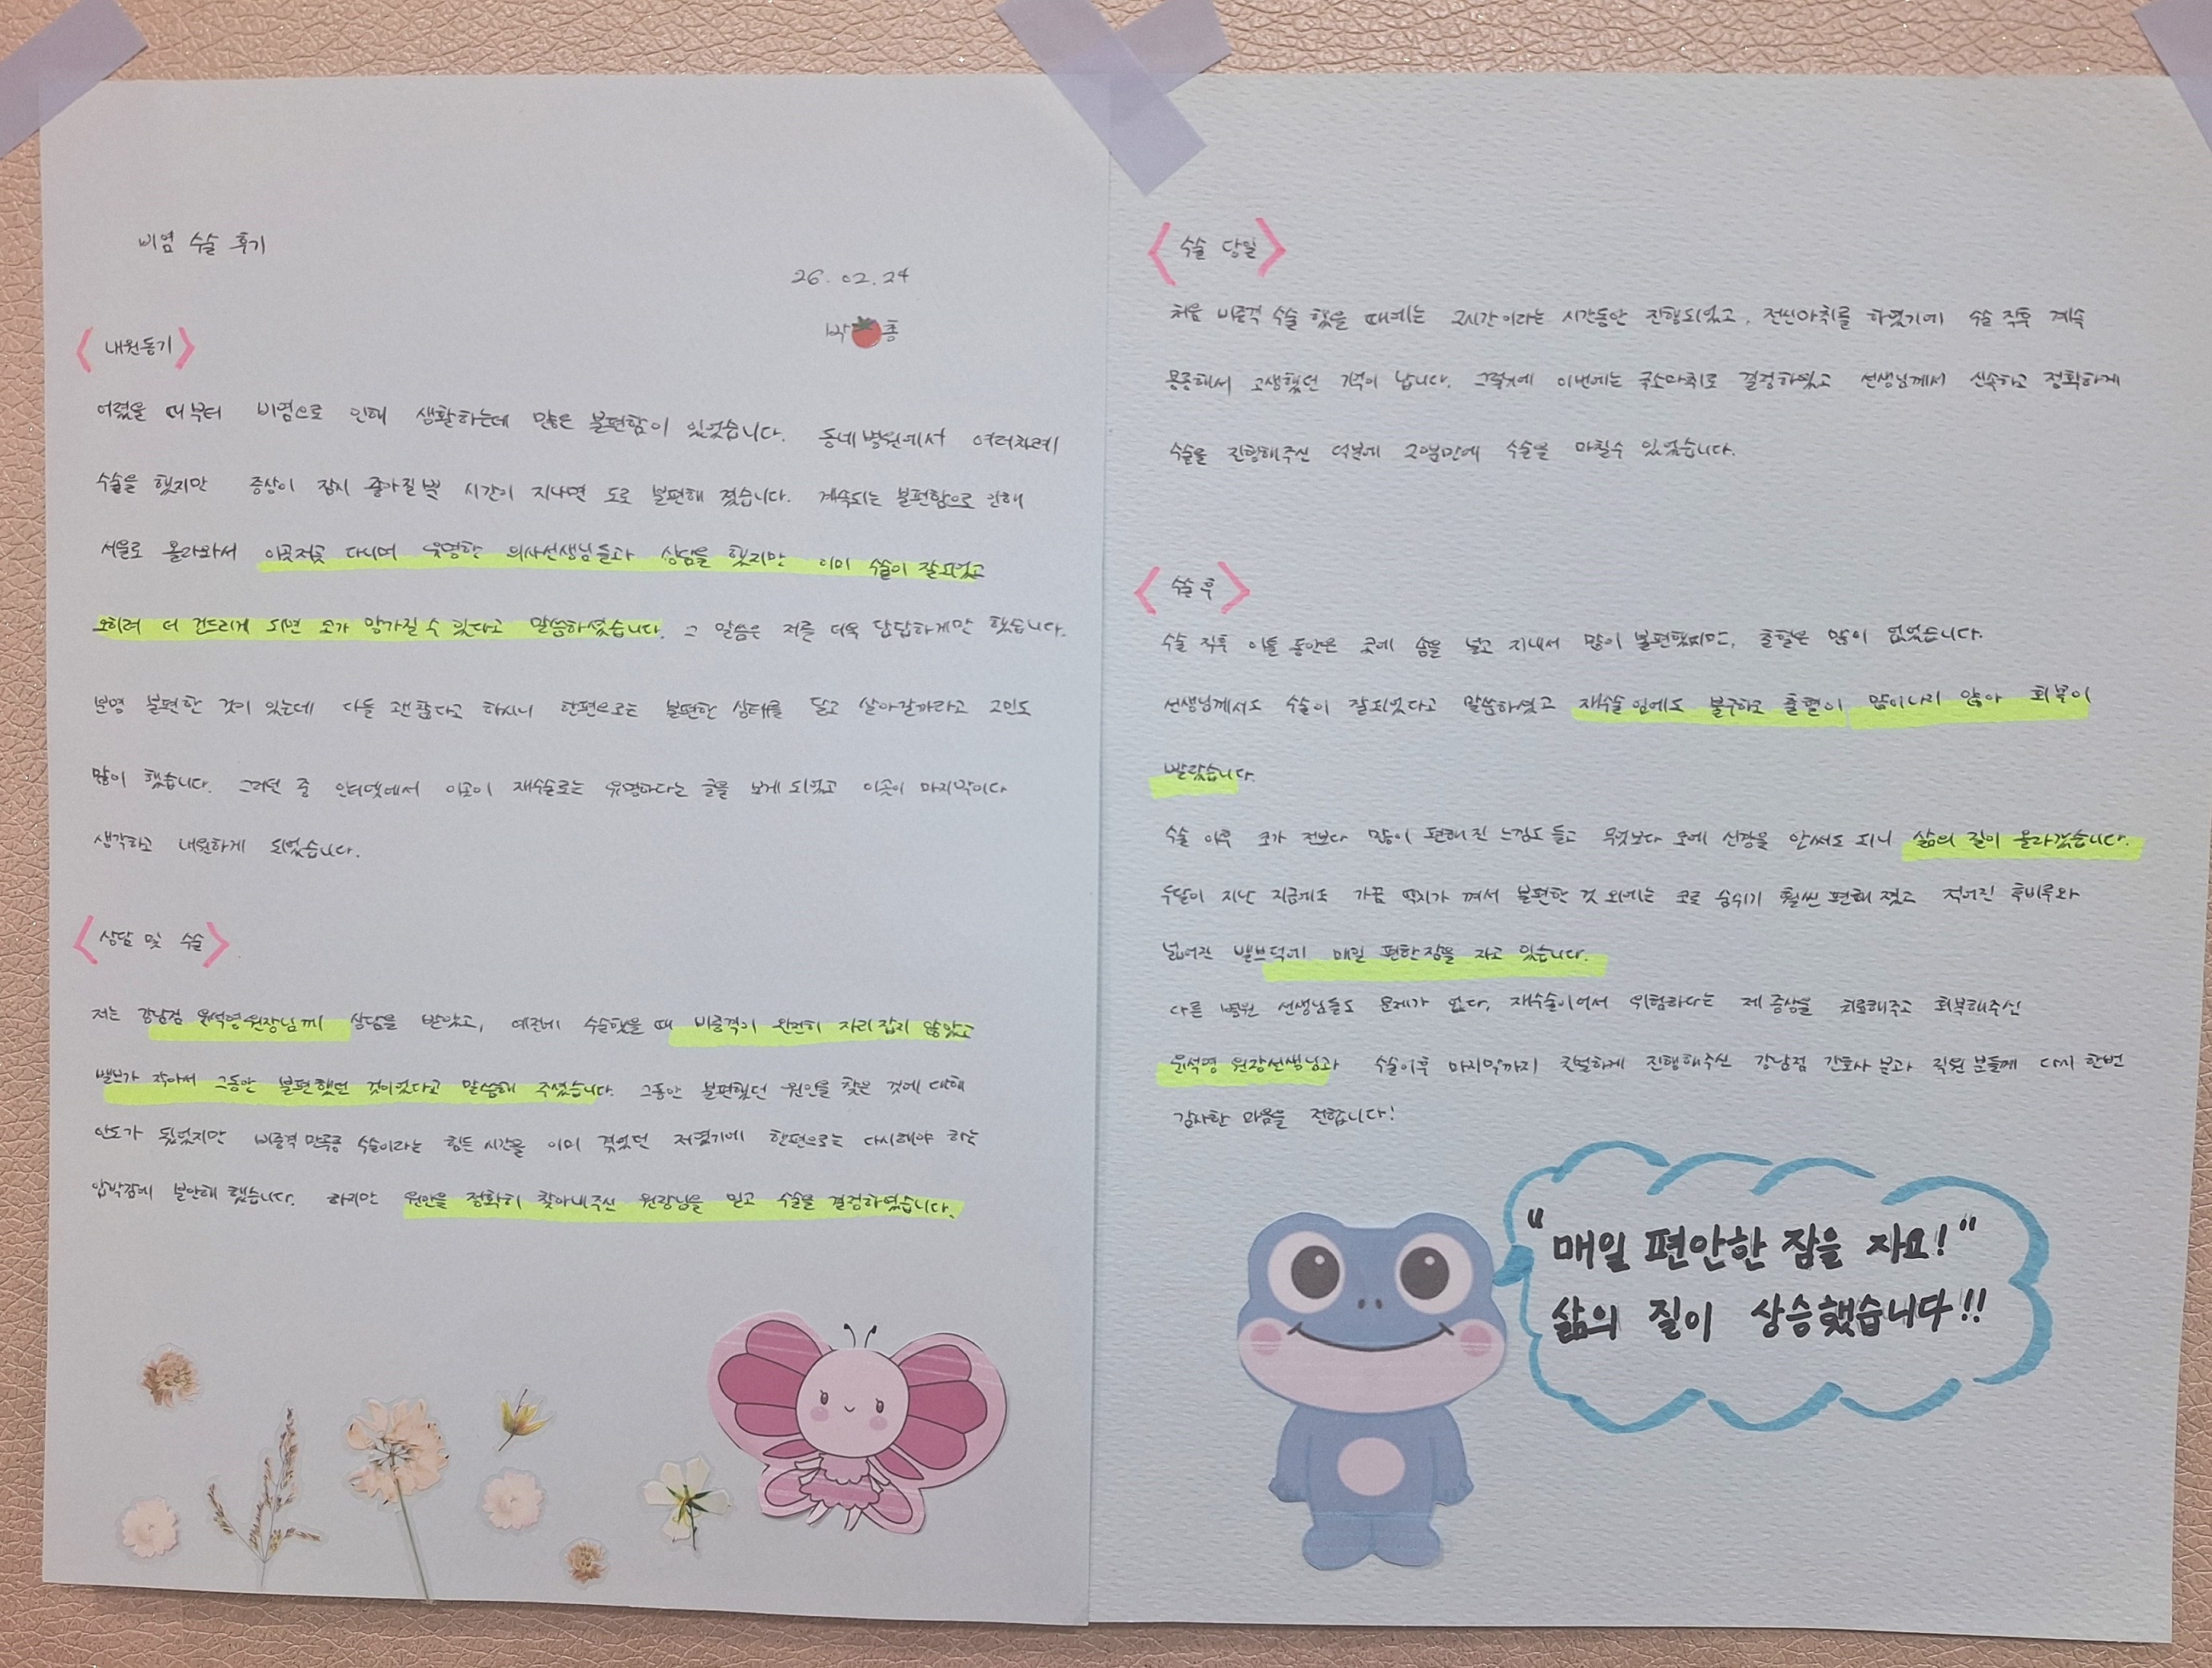 비염 수술 후기
26. 02. 24
박 총
<내원동기>
어렸을 때부터 비염으로 인해 생활하는데 많은 불편함이 있었습니다. 동네병원에서 여러차례
수술을 했지만 증상이 잠시 좋아질뿐 시간이 지나면 도로 불편해 졌습니다. 계속되는 불편함으로 인해
서울로 올라와서 이곳저곳 다니며 유명한 의사선생님들과 상담을 했지만 이미 수술이 잘되었고
오히려 더 건드리게 되면 코가 망가질 수 있다고 말씀하셨습니다. 그 말씀은 저를 더욱 답답하게만 했습니다.
분명 불편한 것이 있는데 다들 괜찮다고 하시니 한편으로는 불편한 상태를 달고 살아갈까라고 고민도
많이 했습니다. 그러던 중 인터넷에서 이곳이 재수술로는 유명하다는 글을 보게 되었고 이곳이 마지막이다
생각하고 내원하게 되었습니다.
<상담 및 수술>
저는 강남점 윤석영원장님께 상담을 받았고, 예전에 수술했을 때 비중격이 완전히 자리 잡지 않았고
밸브가 작아서 그동안 불편했던 것이었다고 말씀해 주셨습니다. 그동안 불편했던 원인을 찾은 것에 대해
안도가 됬었지만 비중격 만곡증 수술이라는 힘든 시간을 이미 겪었던 저였기에 한편으로는 다시해야 하는
압박감에 불안해 했습니다. 하지만 원인을 정확히 찾아내주신 원장님을 믿고 수술을 결정하였습니다.
<수술 당일>
처음 비중격 수술 했을 때에는 2시간이라는 시간동안 진행되었고, 전신마취를 하였기에 수술 직후 계속
몽롱해서 고생했던 기억이 납니다. 그렇기에 이번에는 국소마취로 결정하였고 선생님께서 신속하고 정확하게
수술을 진행해주신 덕분에 20분만에 수술을 마칠수 있었습니다.
<수술 후>
수술 직후 이틀 동안은 코에 솜을 넣고 지내서 많이 불편했지만, 출혈은 많이 없었습니다.
선생님께서도 수술이 잘되었다고 말씀하셨고 재수술임에도 불구하고 출혈이 많이나지 않아 회복이
빨랐습니다.
수술 이후 코가 전보다 많이 편해진 느낌도 들고 무엇보다 코에 신경을 안써도 되니 삶의 질이 올라갔습니다.
두달이 지난 지금에도 가끔 딱지가 껴서 불편한 것 외에는 코로 숨쉬기 훨씬 편해 졌고 적어진 후비루와
넓어진 밸브덕에 매일 편한잠을 자고 있습니다.
다른 병원 선생님들도 문제가 없다, 재수술이어서 위험하다는 제 증상을 치료해주고 회복해주신
윤석영 원장선생님과 수술이후 마지막까지 친절하게 진행해주신 강남점 간호사 분과 직원 분들께 다시 한번
감사한 마음을 전합니다!
"매일 편안한 잠을 자요!"
삶의 질이 상승했습니다!!